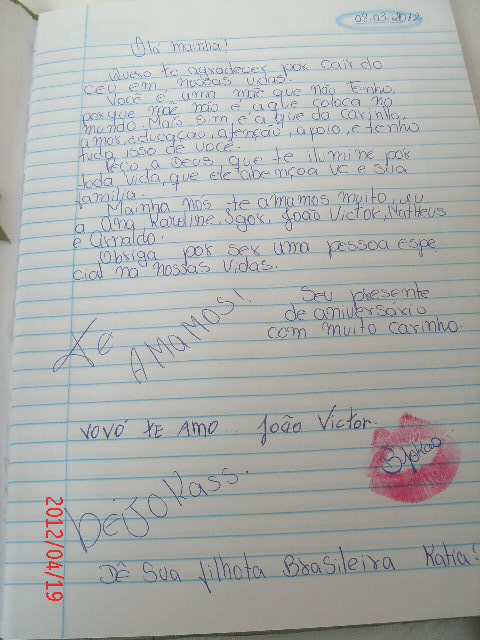 03.03.2012
Olá mainha!
Quero te agradecer por cair do
ceu em nossas vidas.
Você é uma mãe que não tenho,
porque mãe não é a que coloca no
mundo. Mais sim, é a que da carinho,
amor, educação, atenção, apoio, e tenho
tudo isso de você.
Peço a Deus, que te ilumine por
toda vida, que ele abençoa vc e sua
família.
Mainha nos te amamos muito, eu
a Ana Karoline, Igor, João Victor, Matheus
e Arnaldo.
Obriga por ser uma pessoa espe
cial na nossas vidas.
Te AMAMOS!
Seu presente
de aniversário
com muito carinho.
VOVÓ TE AMO... João Victor.
Bjokas
beijokass.
Dê Sua filhota Brasileira Katia!
2012/04/19